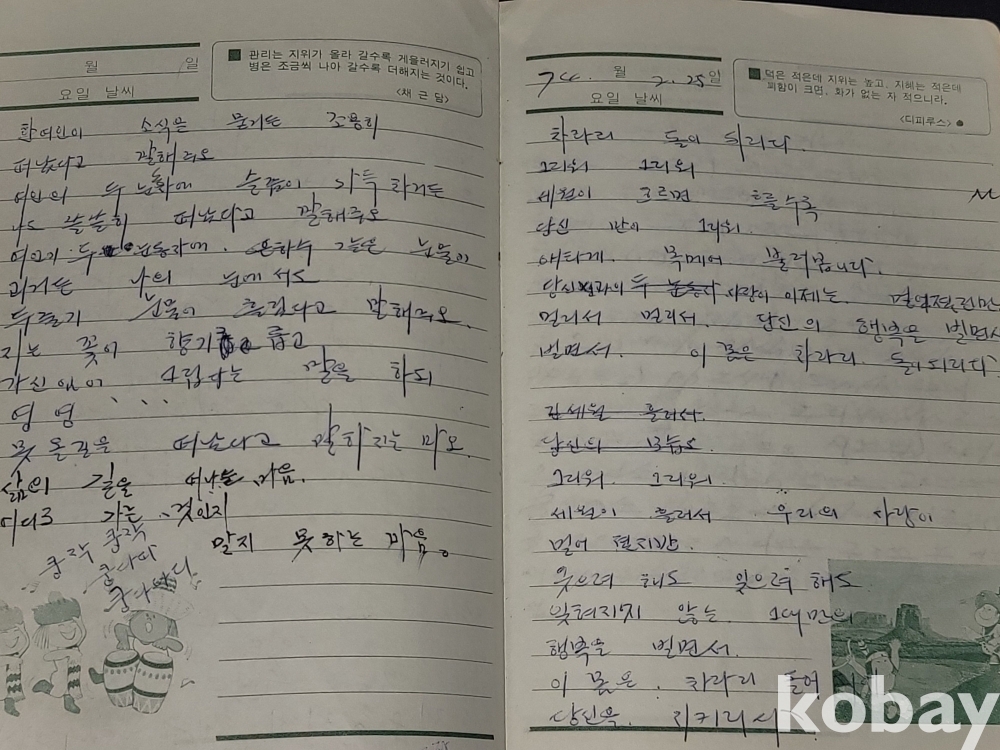 월 일
요일 날씨
■ 관리는 지위가 올라 갈수록 게을러지기 쉽고
병은 조금씩 나아 갈수록 더해지는 것이다.
<채 근 담>
한여인이 소식을 묻거든 조용히
떠났다고 말해줘요
여인의 두 눈에 슬픔이 가득 하거든
나도 쓸쓸히 떠났다고 말해주오
여인의 두 눈동자에. 은하수 같은 눈물이
나의 눈에서도
두줄기 눈물이 흘렀다고 말해줘요.
지는 꽃이 향기롭고
가신 님이 그립다는 말을 하되
영 영 ....
못 올길을 떠났다고 말하지는 마오.
삶의 길을 떠나는 마음.
어디로 가는 것인지
말지 못하는 마음。
쿵작 쿵작
쿵나다
74. 월 2. 25일
요일 날씨
■ 먹은 적은데 지위는 높고, 지혜는 적은데
꾀함이 크면, 화가 없는 자 적으니라.
<디피루스> ●
차라리 돌이 되리다.
그리워 그리워
세월이 흐르면 흐를수록
당신 만이 그리워.
애타게. 목메어 불러봅니다.
당신과의 두 사랑이 이제는.
멀리서 멀리서. 당신의 행복을 빌면서
빌면서. 이 몸은 차라리 돌이되리다
긴세월 흘러서.
당신의 모습도
그리워 그리워.
세월이 흘러서 우리의 사랑이
멀어 졌지만.
웃으려 해도 잊으려 해도
잊혀지지 않는 그대만의
행복을 빌면서.
이 몸은. 차라리 돌이
당신을.
kobay